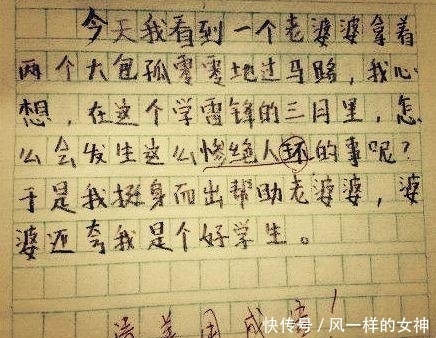 今天我看到一个老婆婆拿着
两个大包孤零零地过马路，我心
想，在这个学雷锋的三月里，怎
么会发生这么惨绝人环的事呢？
于是我挺身而出帮助老婆婆，婆
婆还夸我是个好学生。
用成！
快传号／风一样的女神